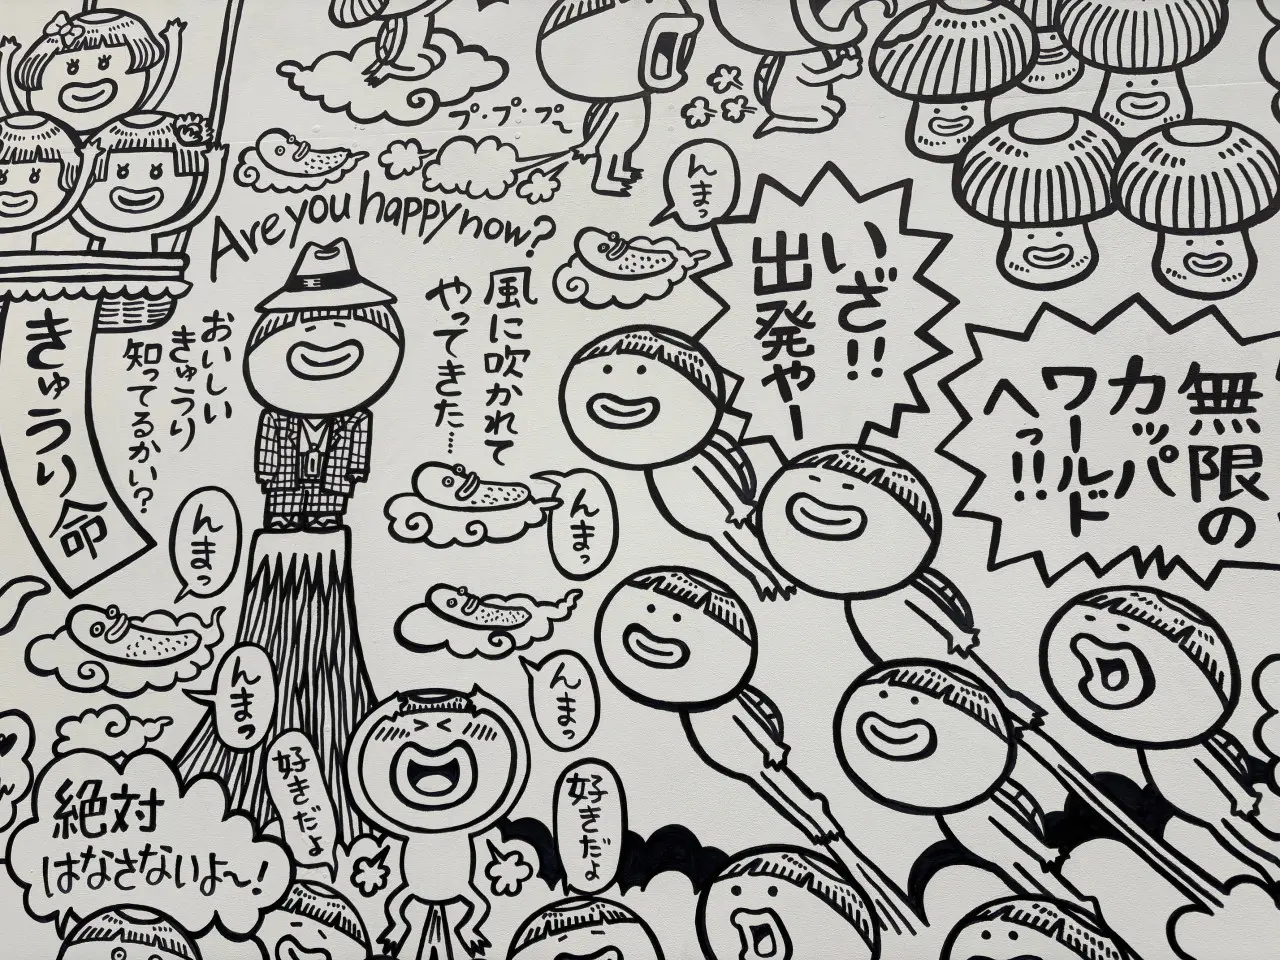 プ・プ・プ〜
Are you happy now?
んまっ
いざ!!
出発やー
無限の
カッパ
ワールド
へっ!!
風に吹かれて
やってきた……
おいしい
きゅうり
知ってるかい?
きゅうり命
んまっ
んまっ
んまっ
んまっ
好きだよ
好きだよ
絶対
はなさないよ〜!